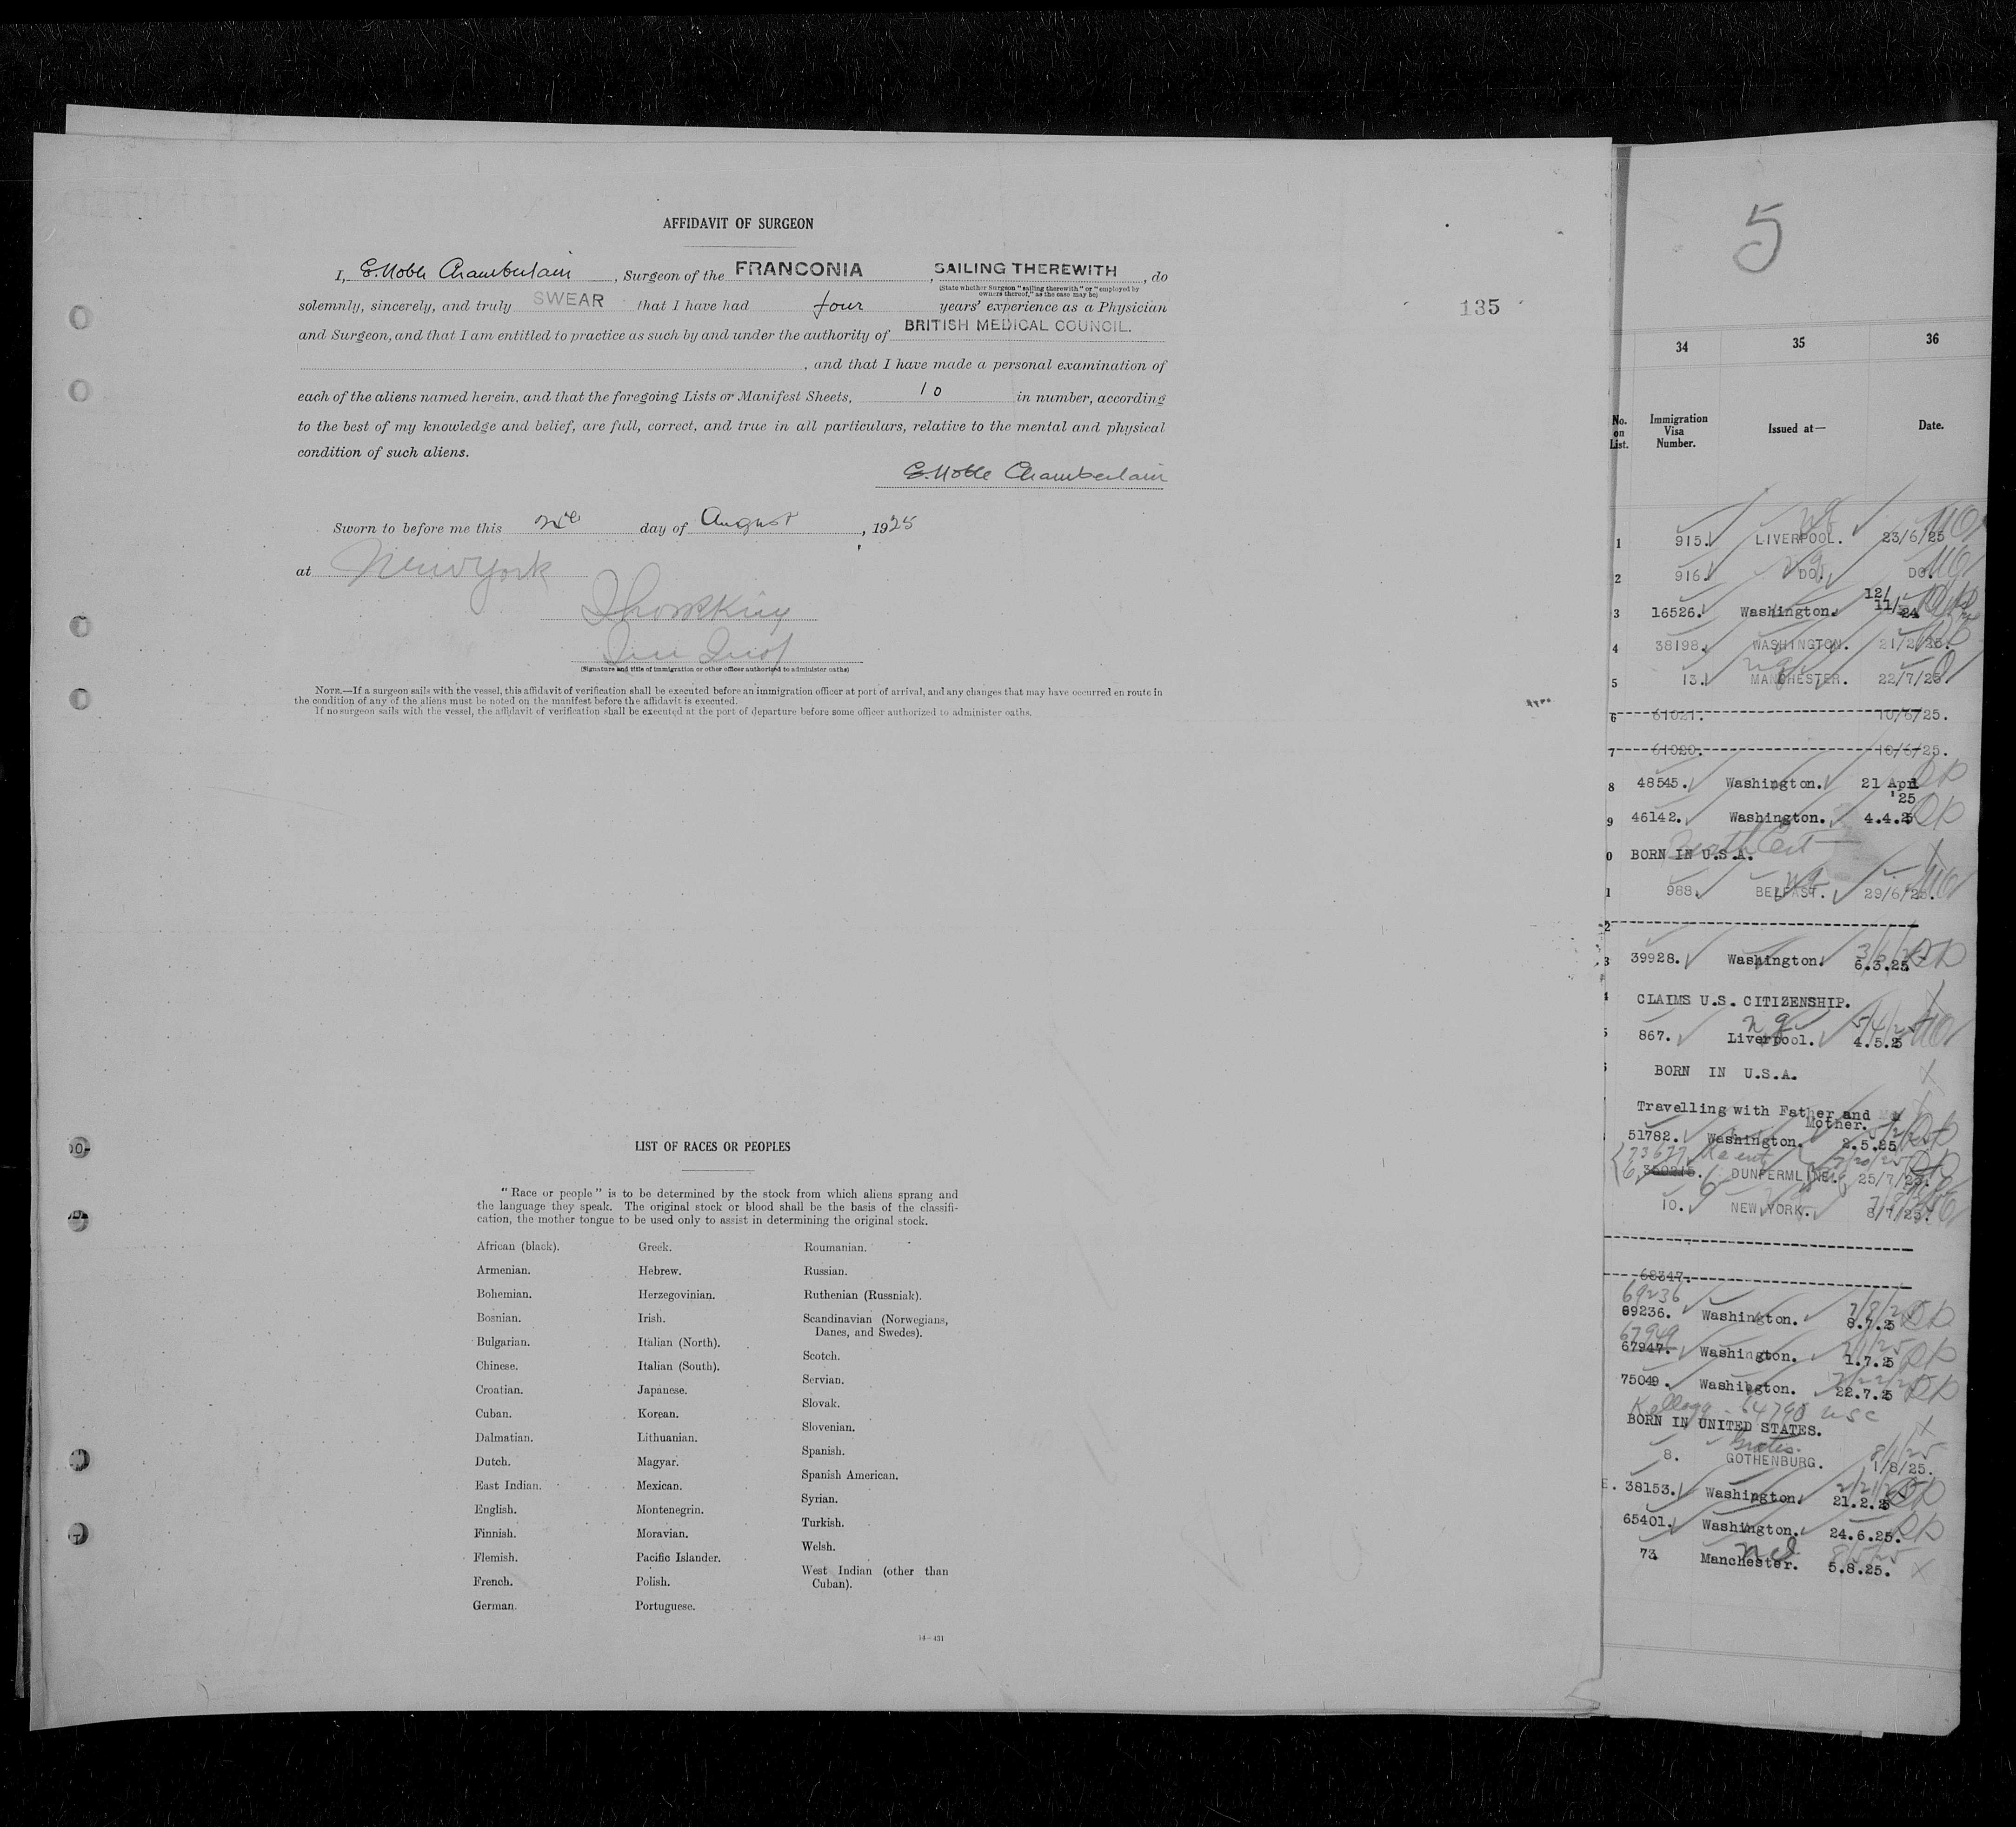 AFFIDAVIT OF SURGEON
I, E. Noble Chamberlain, Surgeon of the FRANCONIA, SAILING THEREWITH, do
(State whether Surgeon "sailing therewith" or "employed by
owners thereof," as the case may be)
solemnly, sincerely, and truly SWEAR that I have had four years' experience as a Physician
and Surgeon, and that I am entitled to practice as such by and under the authority of BRITISH MEDICAL COUNCIL.
, and that I have made a personal examination of
each of the aliens named herein, and that the foregoing Lists or Manifest Sheets, 10 in number, according
to the best of my knowledge and belief, are full, correct, and true in all particulars, relative to the mental and physical
condition of such aliens.
E. Noble Chamberlain
Sworn to before me this day of August, 1925
at New York
(Signature and title of immigration or other officer authorized to administer oaths)
NOTE.—If a surgeon sails with the vessel, this affidavit of verification shall be executed before an immigration officer at port of arrival, and any changes that may have occurred en route in
the condition of any of the aliens must be noted on the manifest before the affidavit is executed.
If no surgeon sails with the vessel, the affidavit of verification shall be executed at the port of departure before some officer authorized to administer oaths.
135
LIST OF RACES OR PEOPLES
"Race or people" is to be determined by the stock from which aliens sprang and
the language they speak. The original stock or blood shall be the basis of the classifi-
cation, the mother tongue to be used only to assist in determining the original stock.
African (black).
Armenian.
Bohemian.
Bosnian.
Bulgarian.
Chinese.
Croatian.
Cuban.
Dalmatian.
Dutch.
East Indian.
English.
Finnish.
Flemish.
French.
German.
Greek.
Hebrew.
Herzegovinian.
Irish.
Italian (North).
Italian (South).
Japanese.
Korean.
Lithuanian.
Magyar.
Mexican.
Montenegrin.
Moravian.
Pacific Islander.
Polish.
Portuguese.
Roumanian.
Russian.
Ruthenian (Russniak).
Scandinavian (Norwegians,
Danes, and Swedes).
Scotch.
Servian.
Slovak.
Slovenian.
Spanish.
Spanish American.
Syrian.
Turkish.
Welsh.
West Indian (other than
Cuban).
14—431
5
34 35 36
No. on List. Immigration Visa Number. Issued at— Date.
1 915. LIVERPOOL. 23/6/25
2 916. DO. DO.
3 16526. Washington. 12/11/24
4 38198. WASHINGTON. 21/2/25.
5 13. MANCHESTER. 22/7/25
6 61021. 10/6/25.
7 61020. 10/6/25.
8 48545. Washington. 21 April '25
9 46142. Washington. 4.4.25
0 BORN IN U.S.A. Birth Cert
1 988. BELFAST. 29/6/25.
2
3 39928. Washington. 6.3.25
CLAIMS U.S. CITIZENSHIP.
867. Liverpool. 4.5.25
BORN IN U.S.A.
Travelling with Father and
Mother.
51782. Washington. 2.5.25
DUNFERMLINE. 25/7/25.
10. NEW YORK. 8/7/25.
68347.
69236
89236. Washington. 8.7.25
67949
67947. Washington. 1.7.25
75049. Washington. 22.7.25
Kellogg - usc
BORN IN UNITED STATES.
8. GOTHENBURG. 1/8/25.
38153. Washington. 21.2.25
65401. Washington. 24.6.25.
73. Manchester. 5.8.25.